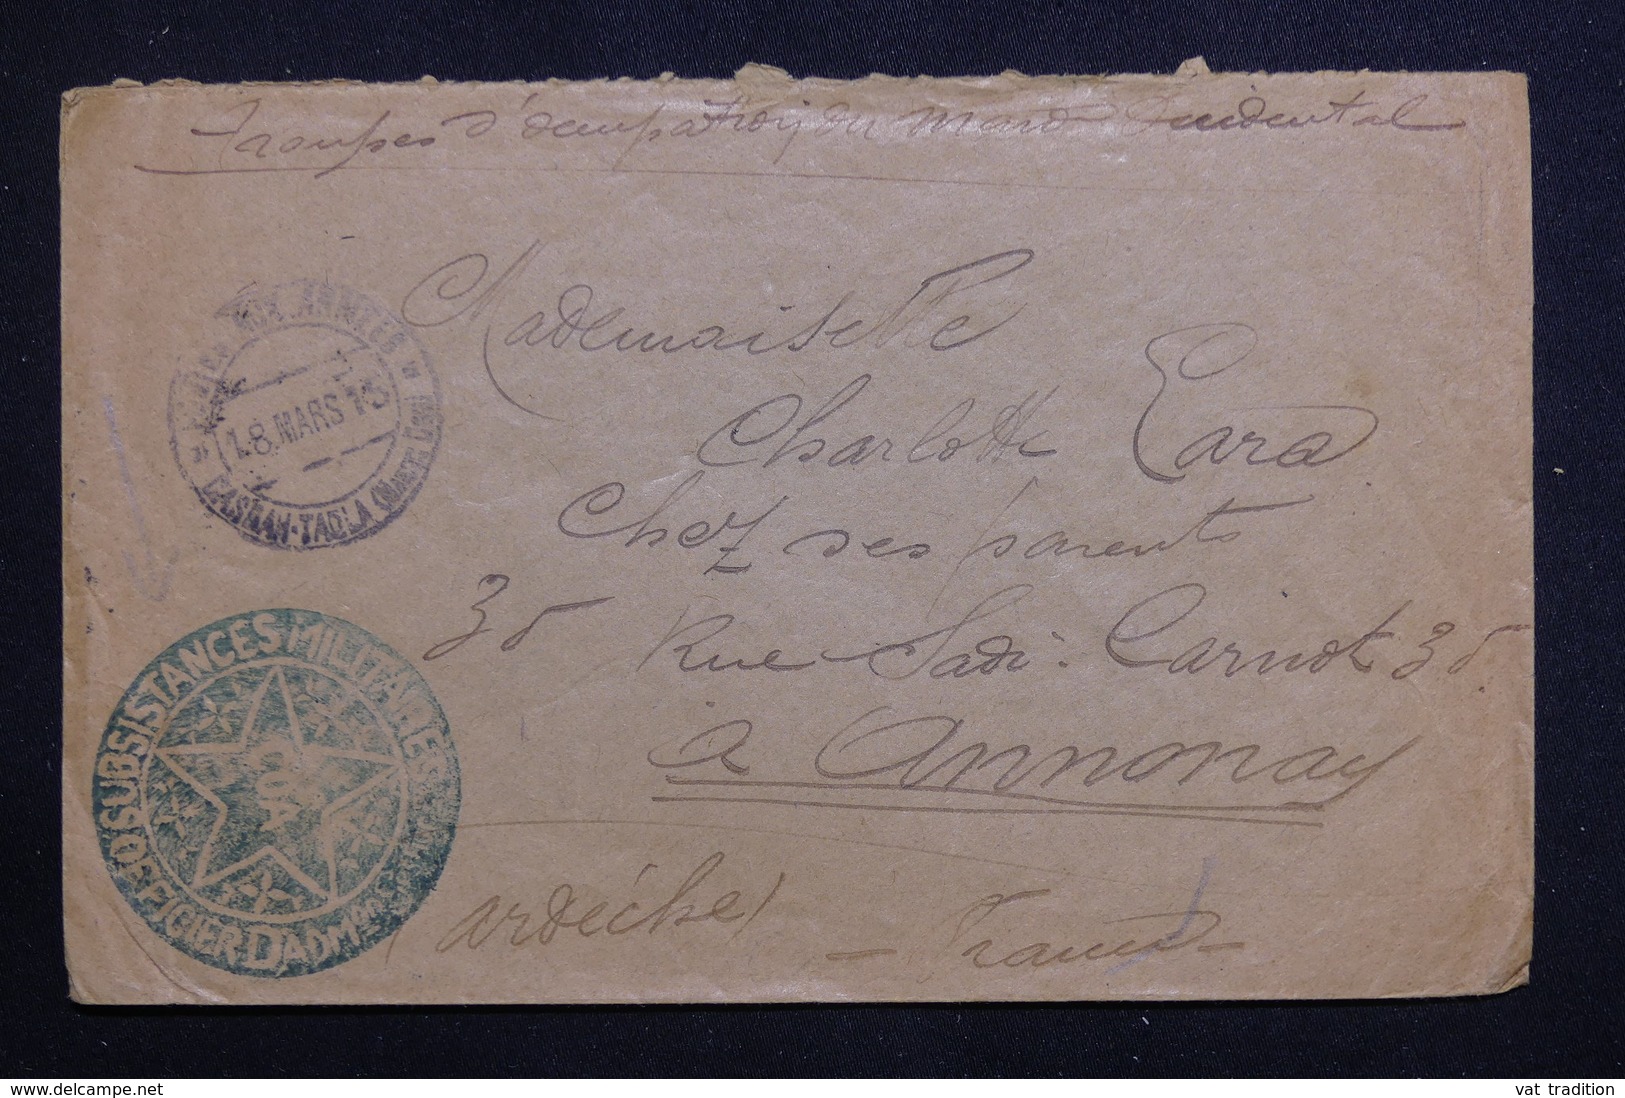 Troupes d'occupation du Maroc Occidental
Mademoiselle
Charlotte Cara
Chez ses parents
35 Rue Sadi-Carnot 35
à Annonay
(Ardèche) - France -
AUX ARMEES
18 MARS 13
CASBAH-TADLA (MAROC
SUBSISTANCES MILITAIRES
OFFICIER D'ADM
delcampe.net
vat tradition